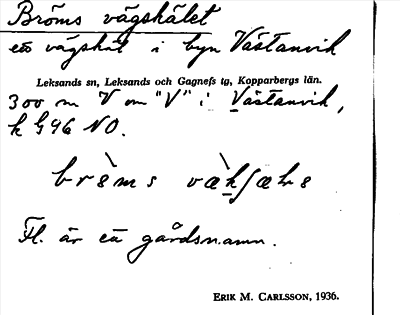 Bröms vägskälet
ett vägskäl i byn Västanvik
Leksands sn, Leksands och Gagnefs tg, Kopparbergs län.
300 m V om "V" i Västanvik,
k G96 NO.
Fl. är ett gårdsnamn.
ERIK M. CARLSSON, 1936.